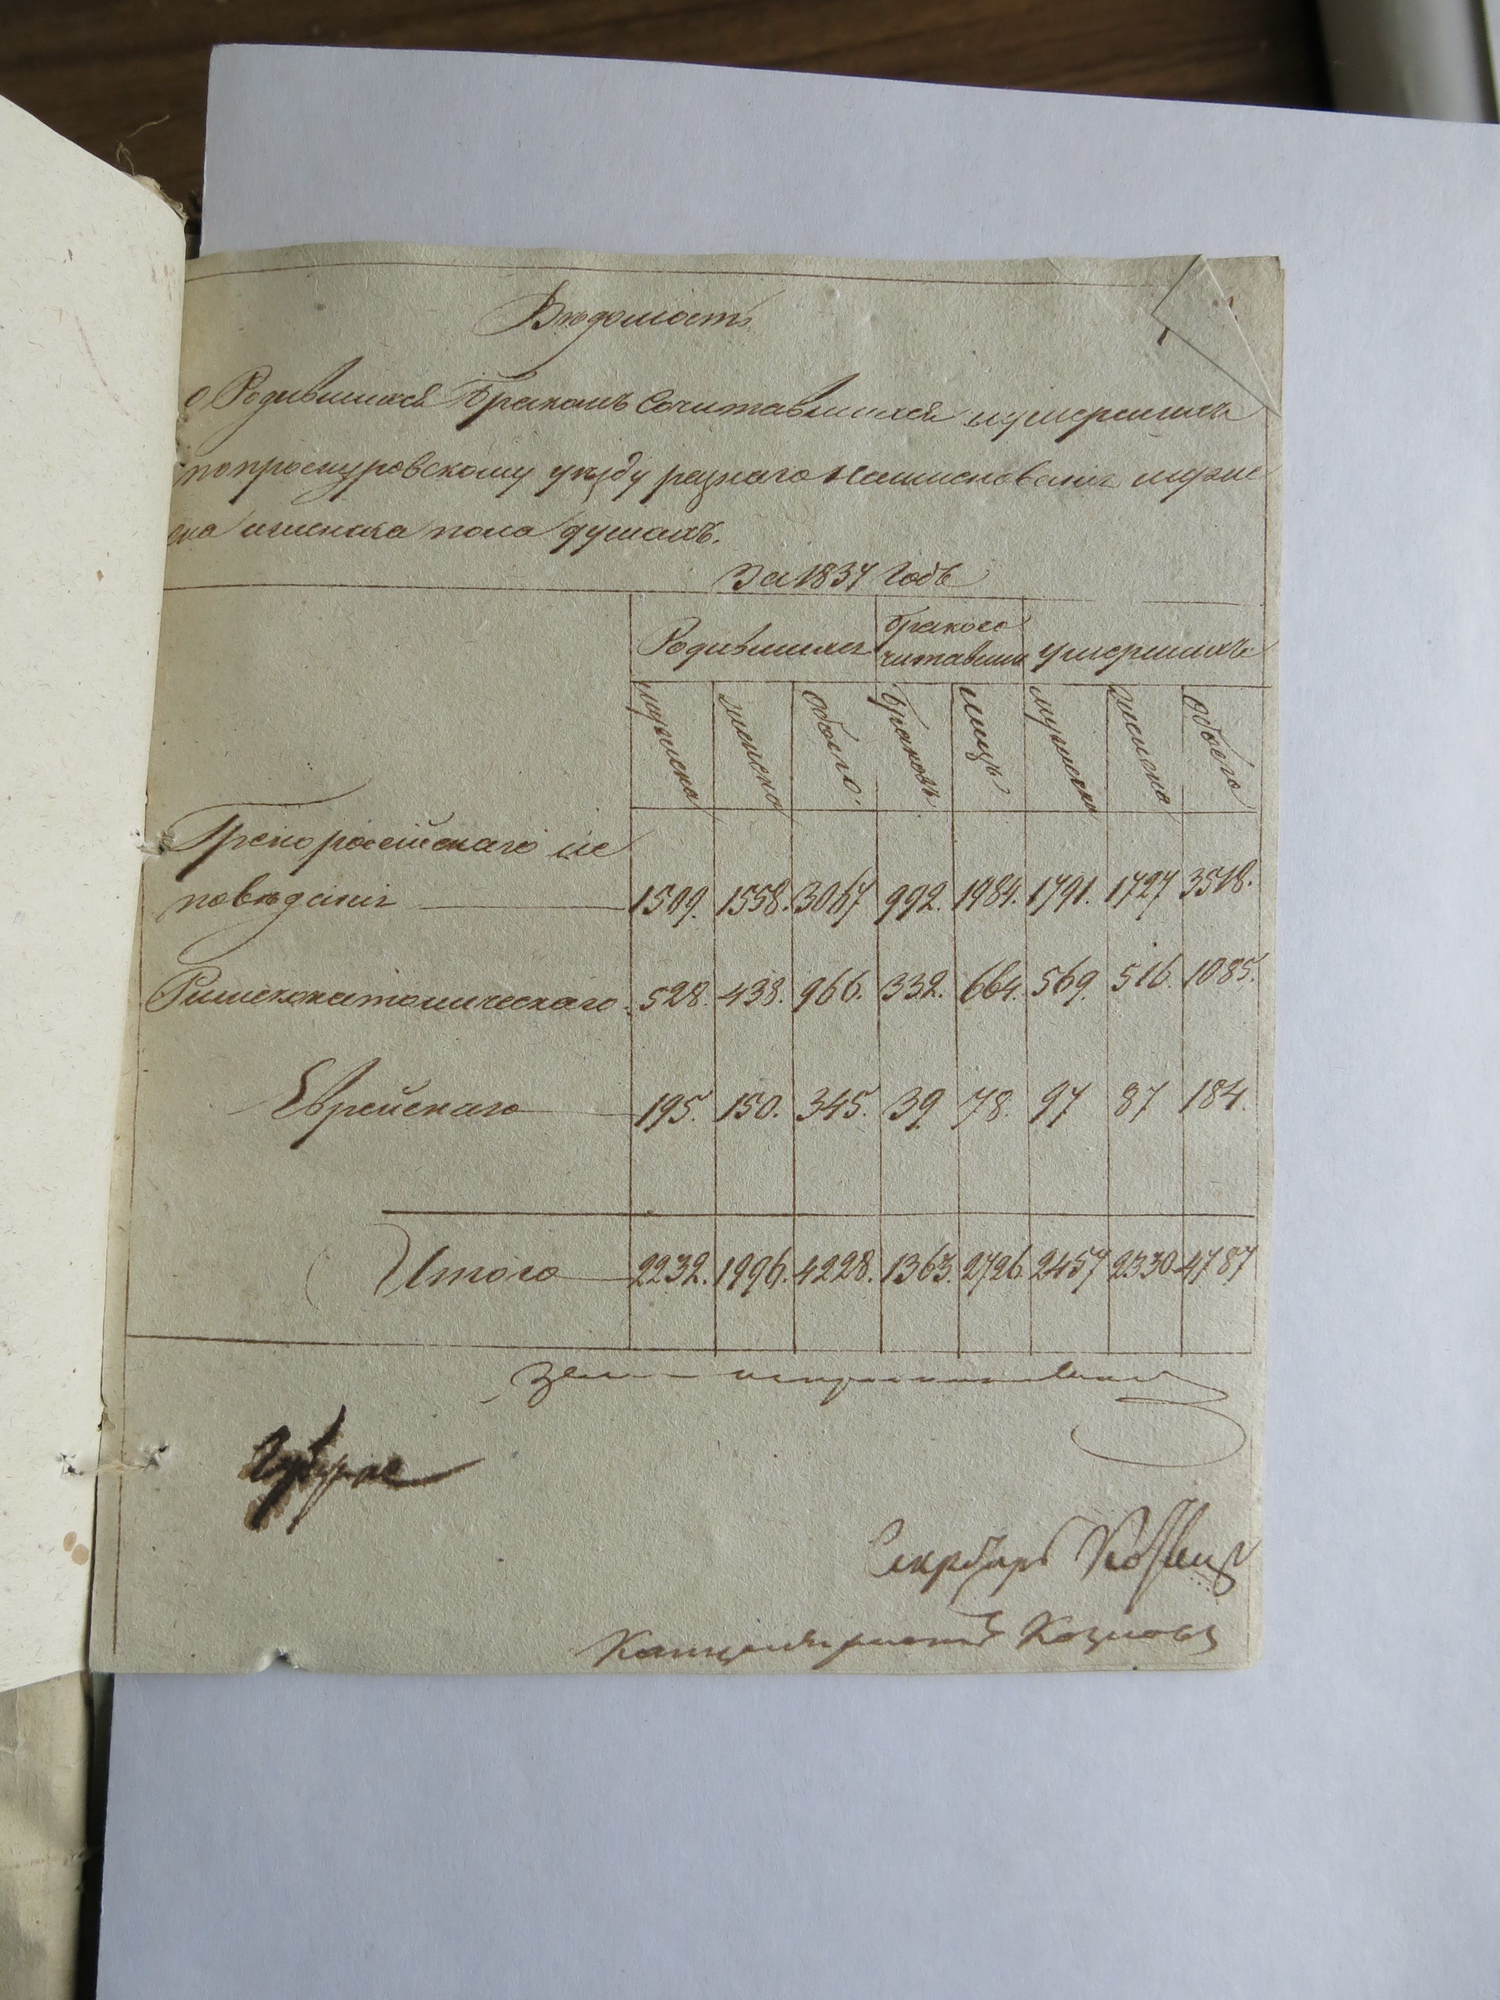 Вѣдомость
о Родившихся Бракомъ Сочитавшихся и умершихъ
по проскуровскому уѣзду разнаго Наименованія мужес
ка и женска пола душахъ.
За 1837 Годъ
Родившихся
Бракосо
читавших
умершихъ
мужеска
женска
Обоего.
Браковъ
лицъ
мужеска
женска
Обоего
Грекороссійскаго ис
повѣданія 1509. 1558. 3067 992. 1984. 1791. 1727 3518.
Римскокатолическаго 528. 438. 966. 332. 664. 569. 516. 1085.
Еврейскаго 195. 150. 345. 39. 78. 97 87 184.
Итого 2232. 1996. 4228. 1363. 2726. 2457 2330 4787
Секретарь
Канцеляристъ Козловъ